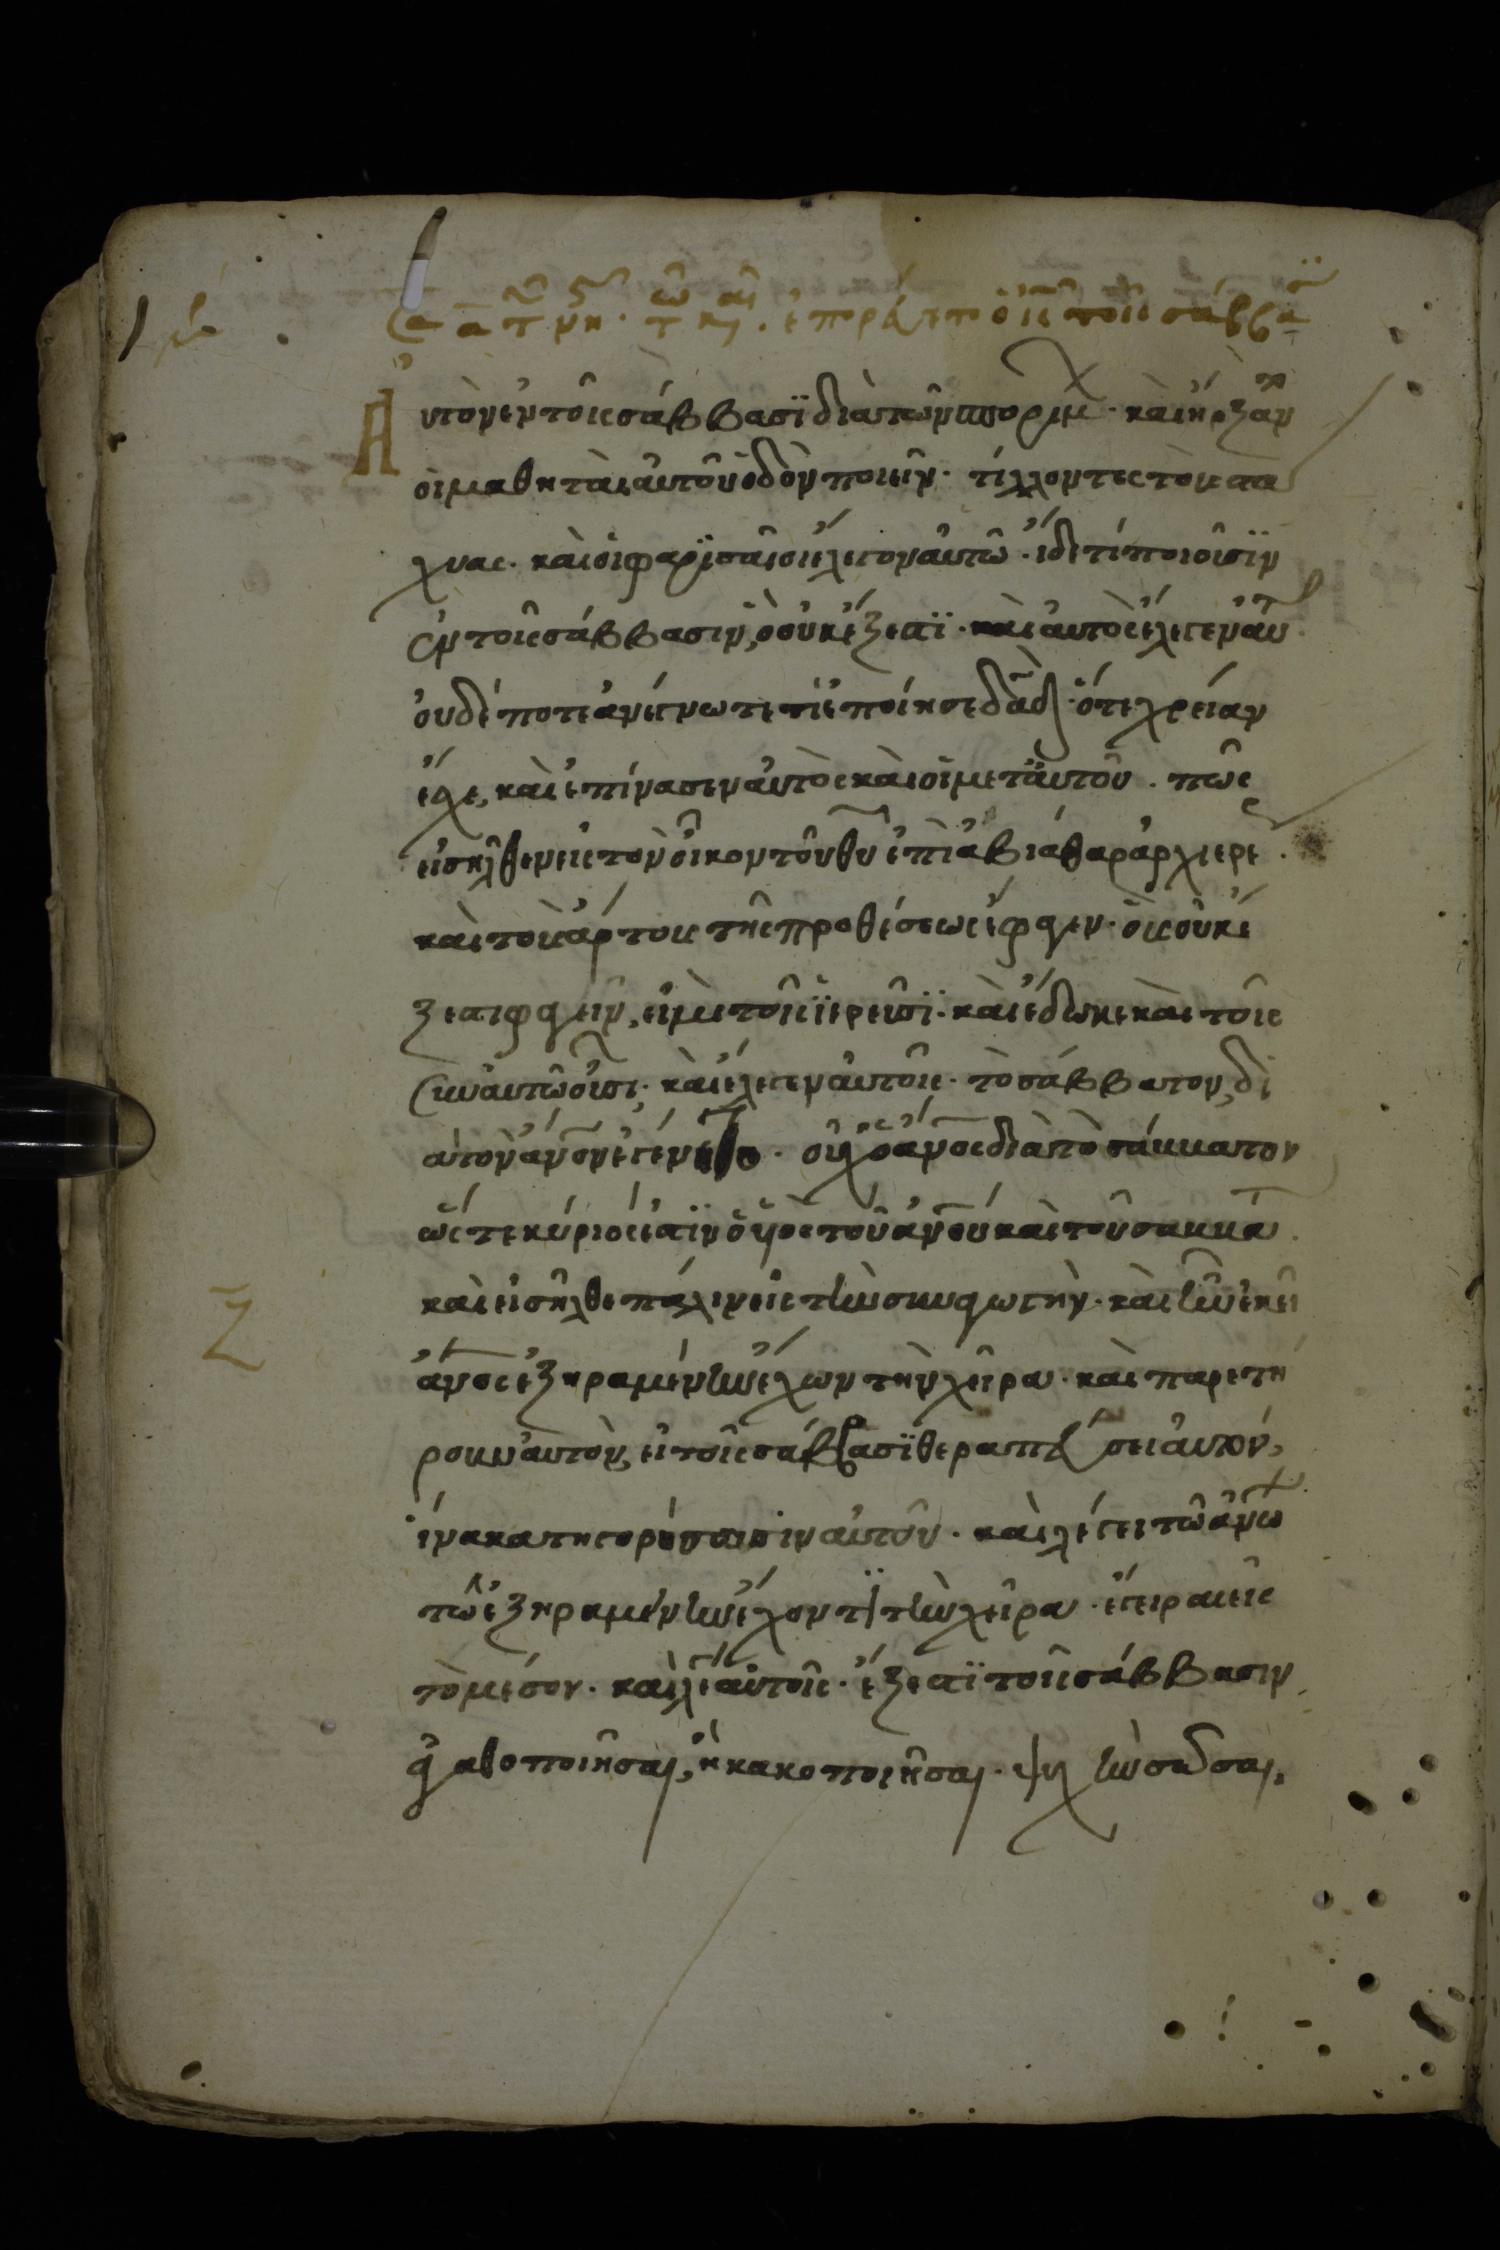 Σα α τῶν νη· τῷ κῶ. ἐπορεύετο ὁ ις τοῖς σάββα
Αυτὸν ἐν τοῖς σάββασϊ διὰ τῶν σπορίμ· καὶ ἤρξαν
οἱ μαθηταὶ αὐτοῦ ὁδὸν ποιεῖν· τίλλοντες τοὺς στά
χυας· καὶ οἱ φαρϊσαῖοι ἔλεγον αὐτῶ· ἴδε τί ποιοῦσϊν
ἐν τοῖς σάββασιν, ὃ οὐκ ἔξεστϊ· καὶ αὐτὸς ἔλεγεν αὐτ
οὐδέποτε ἀνέγνωτε τί ἐποίησε δᾱδ· ὅτε χρείαν
ἔσχε, καὶ ἐπίνασεν αὐτὸς καὶ οἱ μετ' αὐτοῦ. πῶς
εἰσῆλθεν εἰς τὸν οἶκον τοῦ θυ ἐπὶ ἀβιάθαρ ἀρχιερέ
καὶ τοὺς ἄρτους τῆς προθέσεως ἔφαγεν· οὓς οὐκ ἔ
ξεστι φαγεῖν, εἰ μὴ τοῖς ϊερεῦσϊ· καὶ ἔδωκε καὶ τοῖς
σὺν αὐτῶ οὖσι· καὶ ἔλεγεν αὐτοῖς· τὸ σάββατον, δι
α τὸν ἄνον ἐγένετο· οὐχ ὁ ἄνος διὰ τὸ σάββατον
ὥστε κύριός ἐστϊν ὁ ὑιὸς τοῦ ἀνου καὶ τοῦ σαββά
καὶ εἰσῆλθε πάλιν εἰς τὴν συναγωγήν· καὶ ἦν ἐκεῖ
Ζ
ἄνος ἐξηραμένην ἔχων τὴν χεῖρα· καὶ παρετή
ρουν αὐτὸν, εἰ τοῖς σάββασϊ θεραπεύσει αὐτόν,
ἵνα κατηγορήσωσιν αὐτοῦ· καὶ λέγει τῶ ἀνω
τῶ ἐξηραμένην ἔχοντϊ τὴν χεῖρα· ἔγειραι εἰς
τὸ μέσον· καὶ λέγ αὐτοῖς· ἔξεστϊ τοῖς σάββασιν
ἀγαθοποιῆσαι, ἢ κακοποιῆσαι· ψυχὴν σῶσαι,